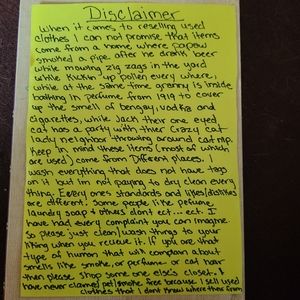 Disclaimer
When it comes to reselling used
clothes I can not promise that items
come from a home where papaw
smoked a pipe after he drank beer
while mowing zig zags in the yard
while kickin up pollen every where,
while at the same time granny is inside
bathing in perfume from 1919 to cover
up the smell of bengay, vodka and
cigarettes, while Jack their one eyed
cat has a party with their crazy cat
lady neighbor throwing around cat nip.
Keep in mind these items (most of which
are used) come from Different places. I
wash everything that does not have tags
on it but im not paying to dry clean every
thing. Every ones standards and likes/dislikes
are different. Some people like pefume,
laundry soap & others dont ect... ect. I
have had every complaint you can imagine
So please just clean/wash things to your
liking when you recieve it. If you are that
type of human that will complain about
smells like smoke, or perfume. or cat hair
then please shop some one else's closet. I
have never claimed pet/smoke free because I sell used
clothes that I don't know where their from